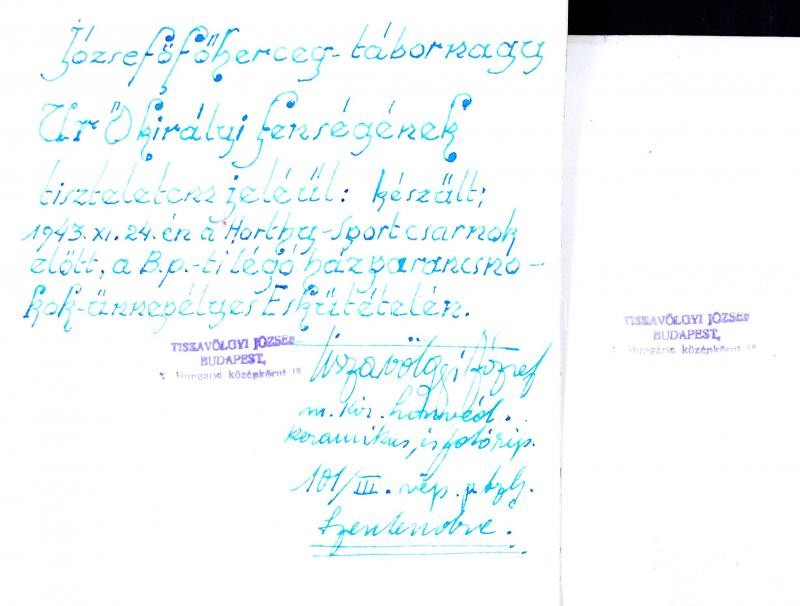 József főherceg-tábornagy
Úr Ő királyi fenségének
tiszteletem jeléül: készült;
1943. XI. 24. én a Horthy-Sportcsarnok
előtt, a B.p.-ti légó házparancsno-
kok-ünnepélyes Eskütételén.
TISZAVÖLGYI JÓZSEF
BUDAPEST,
Hungária középkörut
Tiszavölgyi József
m. kir. honvéd.
keramikus, és fotórip.
101/III. nép. p.
Szentendre.
TISZAVÖLGYI JÓZSEF
BUDAPEST,
Hungária középkörut